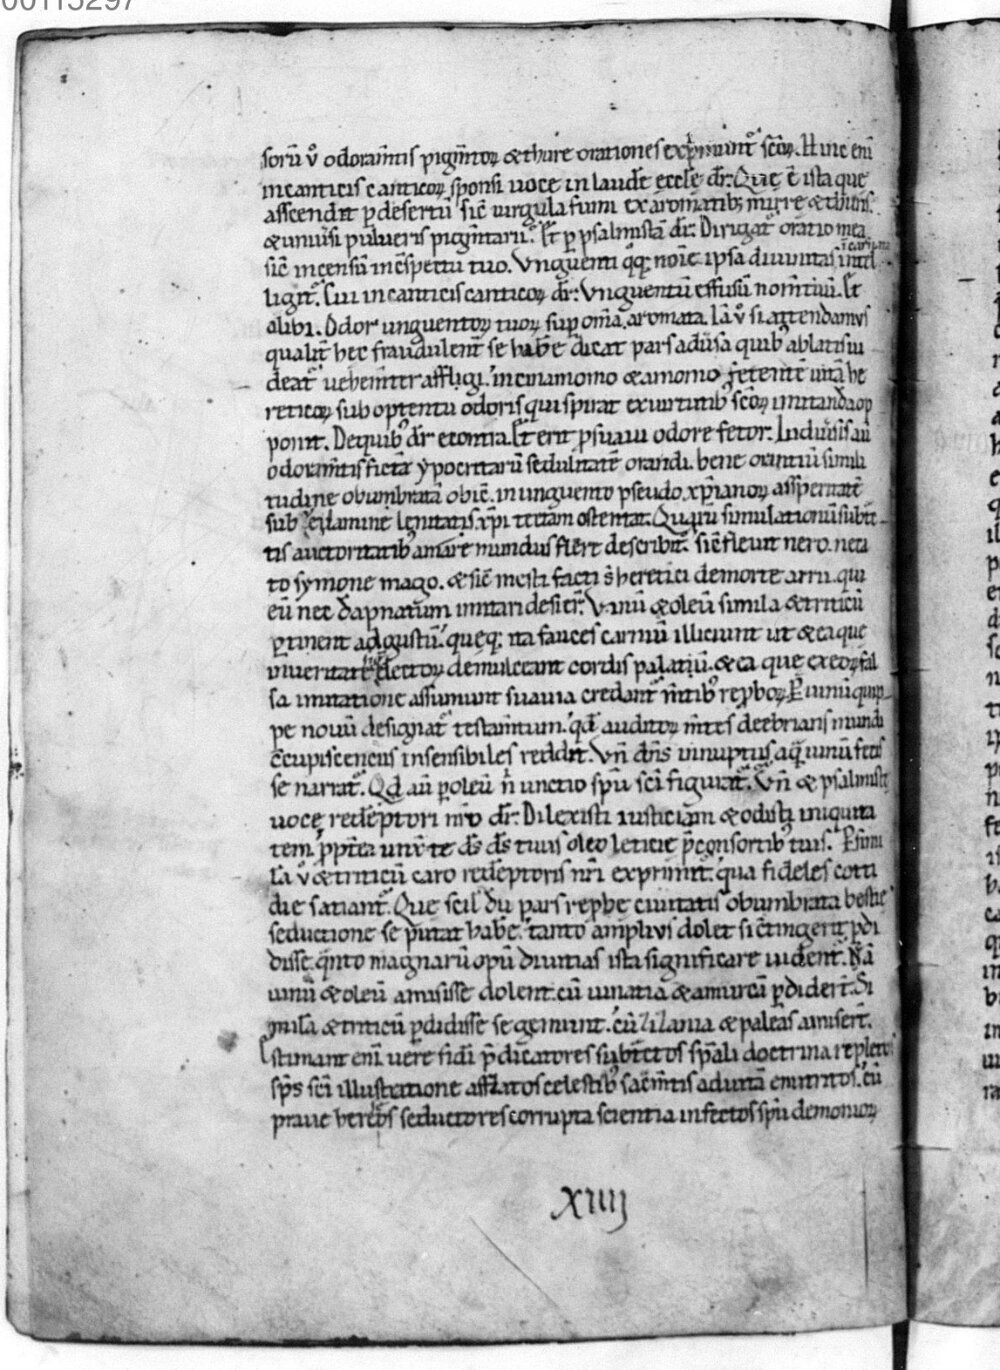 00115297
sorū v̊ odoramtis pigmtoꝝ & thure orationes exprimunt᷑ sc̄oꝝ. Hinc enī
in canticis canticoꝝ sponsi uoce in laudē eccl̄e dr̄. Que ē ista que
asscendit p̱ desertū sic̄ uirgula fumi ex aromatibꝫ mirre & thuris
& uniūsi pulueris pigmtarii. Et p̱ psalmistā dr̄. Dirigat᷑ oratio mea
sic̄ incensū in c̄spectu tuo. Unguenti qͦqꝫ noīe ipsa diuinitas intel
ligit᷑. Cui in canticis canticoꝝ dr̄. Unguentū effusū nom̄ tuū. Et
alibi. Odor unguentoꝝ tuoꝝ sup om̄a aromata. Iā v̊ si attendamus
qualit᷑ hec fraudulent᷑ se habē dicat pars adūsa quibꝰ ablatis ui
deat᷑ uehemt̄er affligi. in cinamomo & amomo fetentē uitā he
reticoꝝ sub optentu odoris qui spirat ex uirtutibꝰ sc̄oꝝ imitanda op
ponit. De quibꝰ dr̄ e contra. Et erit p̱ suaui odore fetor. In diūsis aū
odoramtis fictā ypocritarū sedulitatē orandi. bene orantiū simili
tudine obumbratā obic̄. in unguento pseudo xp̄ianoꝝ asperitatē
sub uelamine lenitatis xp̄i tectam ostentat. Qͦ p̱ru simulationū subti
tis auctoritatibꝰ amare mundus flere describit᷑. sic̄ fleuit nero. neca
to symone mago. & sic̄ mesti facti s̄ heretici de morte arrii. qui
eū nec dāpnatum imitari desier̄. Uinū & oleū simila & triticū
p̱tinent ad gustū. queqꝫ ita fauces carniū illiciunt ut & ea que
in ueritate electoꝝ demulceant cordis palatiū. & ea que ex eoꝝ fal
sa imitatione assumunt suauia credant᷑ m̄tibꝰ rep̱boꝝ. P̱ uinū quip
pe nouū designat᷑ testamtum. qd̄ auditoꝝ m̄tes debrians mundi
c̄cupiscenciis insensibiles reddit. Un̄ dn̄s in nuptiis aq̄ uinū fecis
se narrat᷑. Qd̄ aū p̱ oleū n̄ unctio sp̄u sc̄i figurat᷑. Un̄ & psalmiste
uoce redēptori nr̄o dr̄. Dilexisti iusticiam & odisti iniquita
tem. p̱pt̄ea unx̄ te ds̄ ds̄ tuus oleo leticie p̄ consortibꝰ tuis. P̱ simi
la v̊ & triticū caro redēptoris nr̄i exprimit᷑. qua fideles cotti
die satiant᷑. Que scil dū pars rep̱be ciuitatis obumbrata bestie
seductione se putat habē. tanto amplius dolet si c̄tingerit p̱di
disse. qͣnto magnarū opū diuitias ista significare uident᷑. Nā
uinū & oleū amisisse dolent. cū uinatia & amurcā p̱diderit᷑. Si
mila & triticū p̱didisse se gemunt. cū lilania & paleas amiser̄t.
Estimant enī uere fidi p̄dicatores subtctos sp̄ali doctrina repletos
sp̄s sc̄i illustratione afflatos celestibꝰ sacm̄tis ad uitā enutritos. cū
praue hereos seductores corrupta scientia infectos sp̄u demonioꝝ
XIIIJ